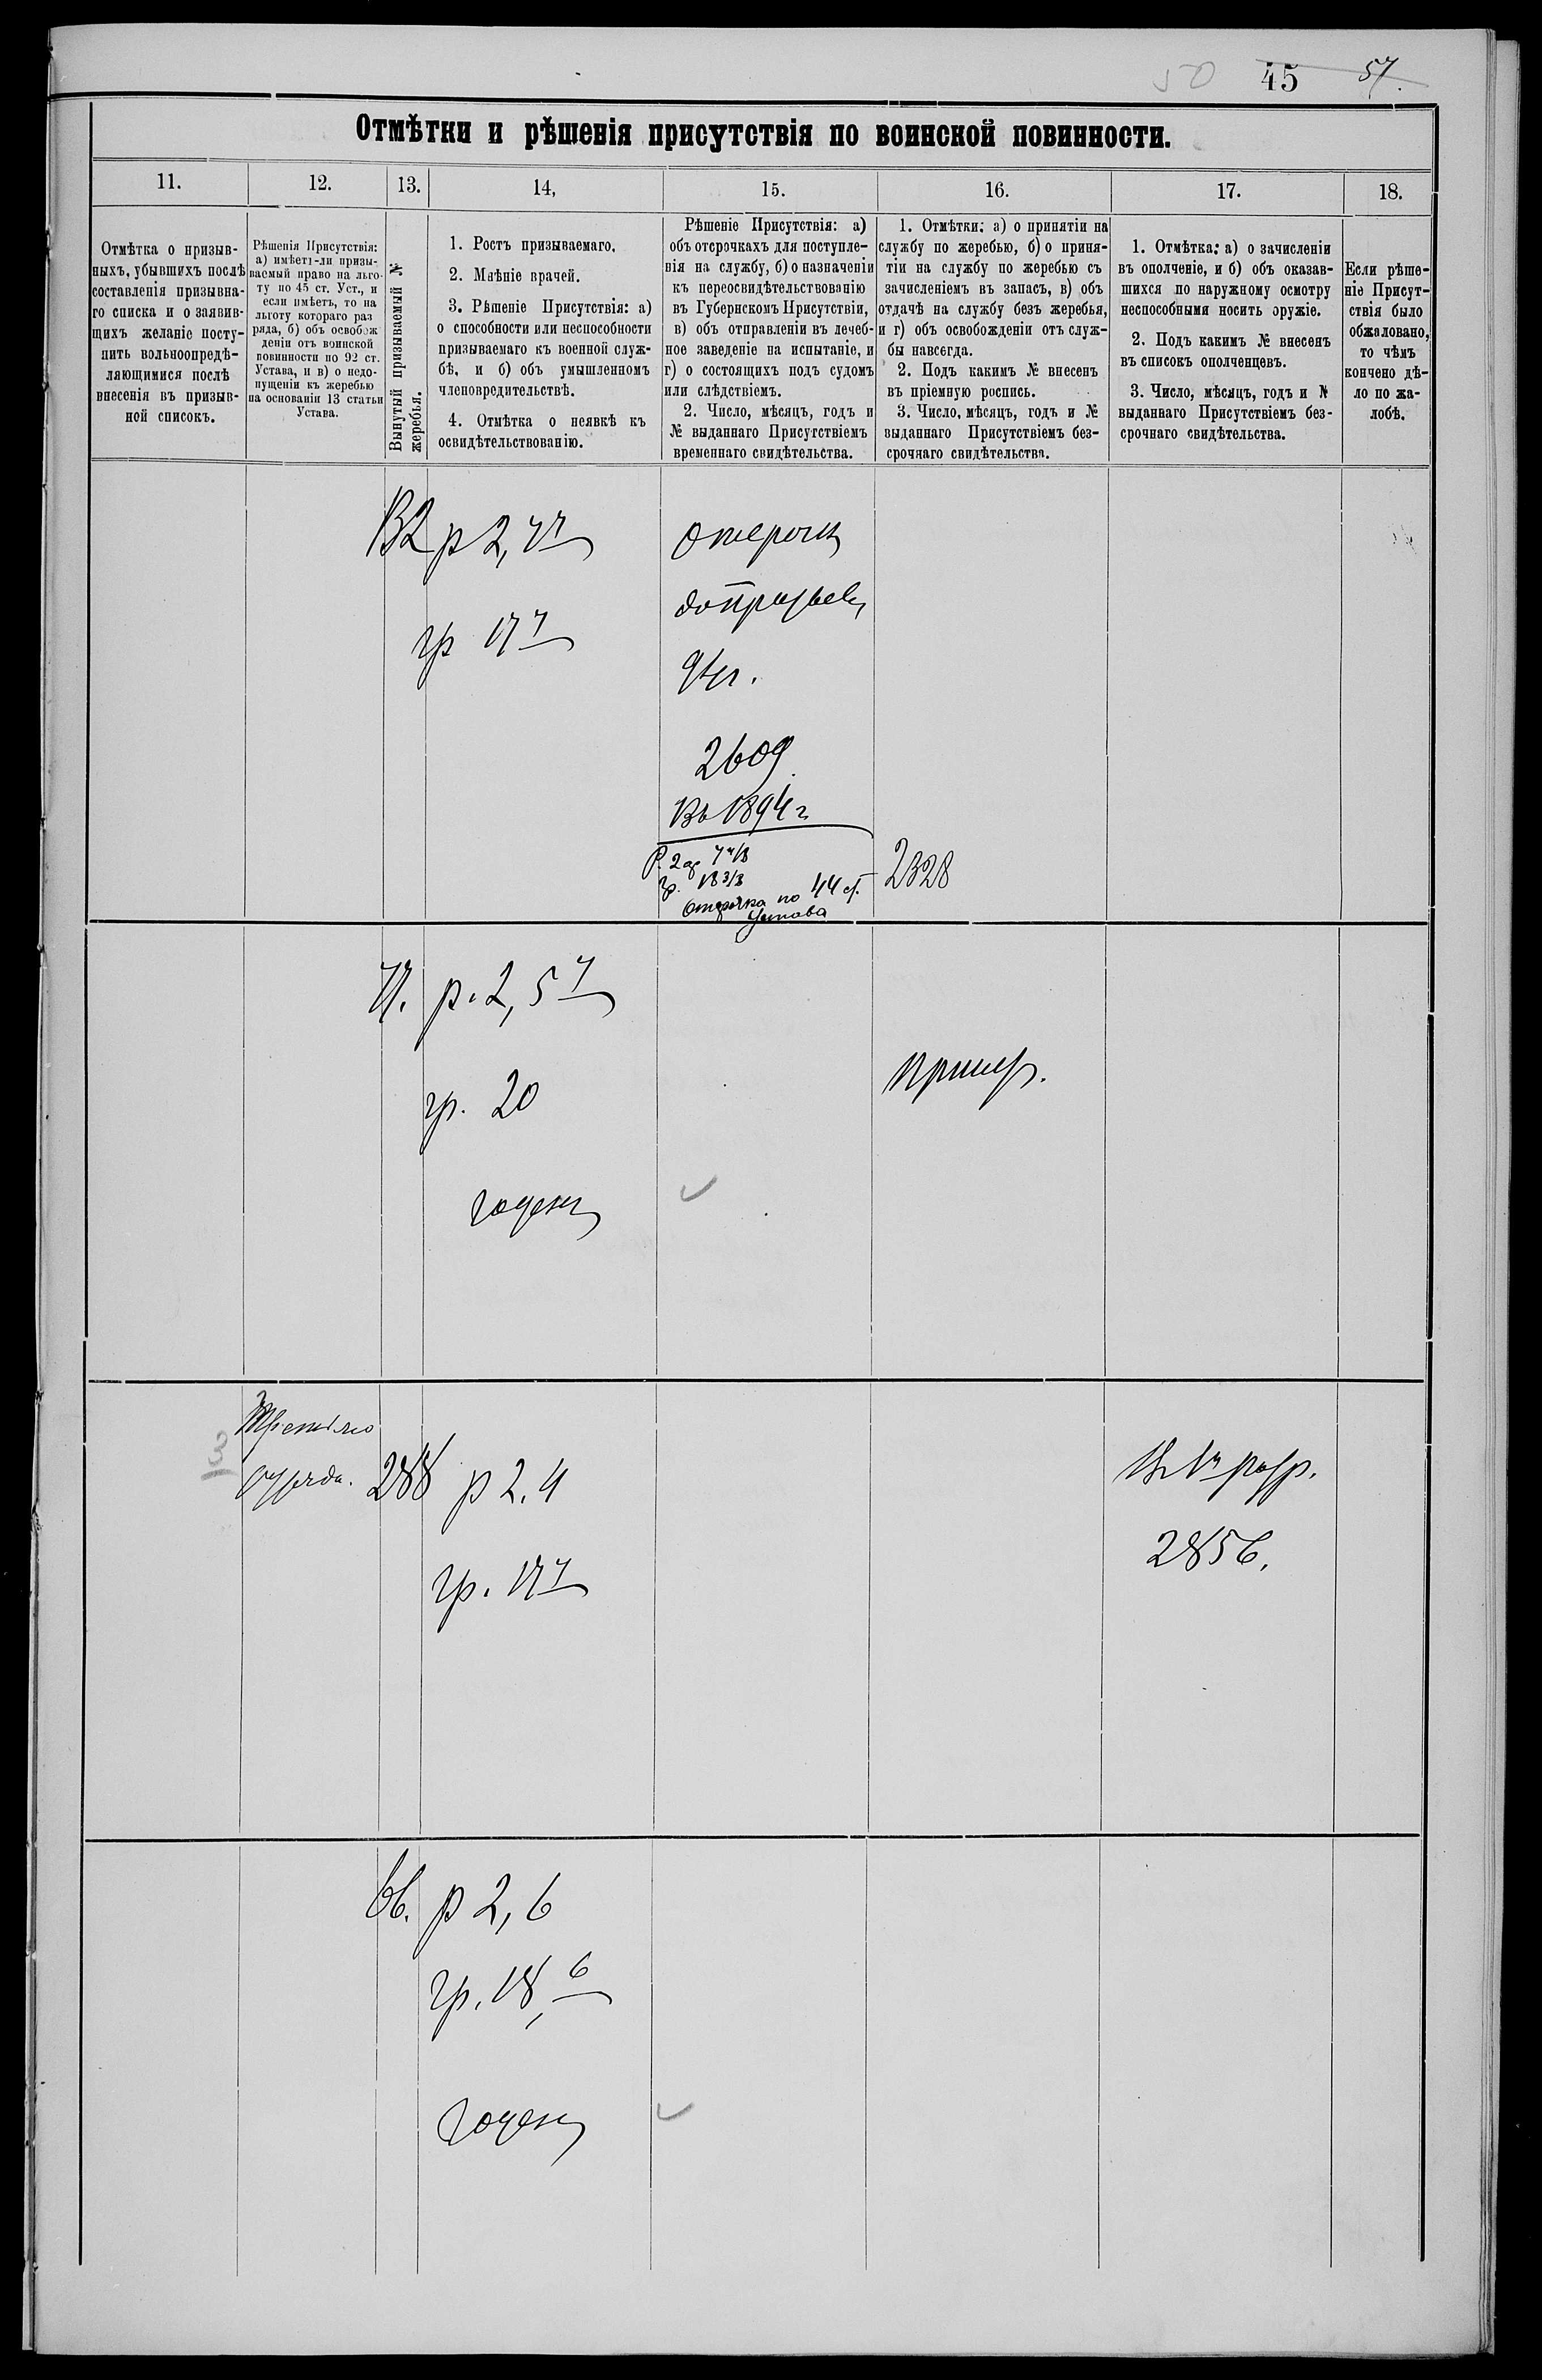 50 45 57.
Отмѣтки и рѣшенія присутствія по воинской повинности.
11.
12.
13.
14,
15.
16.
17.
18.
Отмѣтка о призыв-
ныхъ, убывшихъ послѣ
составленія призывна-
го списка и о заявив-
щихъ желаніе посту-
пить вольноопредѣ-
ляющимися послѣ
внесенія въ призыв-
ной списокъ.
Рѣшенія Присутствія:
а) имѣетъ-ли призы-
ваемый право на льго-
ту по 45 ст. Уст., и
если имѣетъ, то на
льготу котораго раз
ряда, б) объ освобож
деніи отъ воинской
повинности по 92 ст.
Устава, и в) о недо-
пущеніи къ жеребью
на основаніи 13 статьи
Устава.
Вынутый призываемый №
жеребья.
1. Ростъ призываемаго.
2. Мнѣніе врачей.
3. Рѣшеніе Присутствія: а)
о способности или неспособности
призываемаго къ военной служ-
бѣ, и б) объ умышленномъ
членовредительствѣ.
4. Отмѣтка о неявкѣ къ
освидѣтельствованію.
Рѣшеніе Присутствія: а)
объ отсрочкахъ для поступле-
нія на службу, б) о назначеніи
къ переосвидѣтельствованію
въ Губернскомъ Присутствіи,
в) объ отправленіи въ лечеб-
ное заведеніе на испытаніе, и
г) о состоящихъ подъ судомъ
или слѣдствіемъ.
2. Число, мѣсяцъ, годъ и
№ выданнаго Присутствіемъ
временнаго свидѣтельства.
1. Отмѣтки: а) о принятіи на
службу по жеребью, б) о приня-
тіи на службу по жеребью съ
зачисленіемъ въ запасъ, в) объ
отдачѣ на службу безъ жеребья,
и г) объ освобожденіи отъ служ-
бы навсегда.
2. Подъ какимъ № внесенъ
въ пріемную роспись.
3. Число, мѣсяцъ, годъ и №
выданнаго Присутствіемъ без-
срочнаго свидѣтельства.
1. Отмѣтка: а) о зачисленіи
въ ополченіе, и б) объ оказав-
шихся по наружному осмотру
неспособными носить оружіе.
2. Подъ какимъ № внесенъ
въ списокъ ополченцевъ.
3. Число, мѣсяцъ, годъ и №
выданнаго Присутствіемъ без-
срочнаго свидѣтельства.
Если рѣше-
ніе Присут-
ствія было
обжаловано,
то чѣмъ
кончено дѣ-
ло по жа-
лобѣ.
132
гр 17 7
94 г.
2609
Въ 1894 г
Р. 2 ар 7 4/8
Гр. 18 3/8
Отсрочка по 44 ст.
Устава
2328
71. р. 2, 5 7
гр. 20
годенъ
Принятъ.
3
разряда.
288 р 2. 4
гр. 17 7
2856.
66. р 2, 6
гр. 18, 6
годенъ